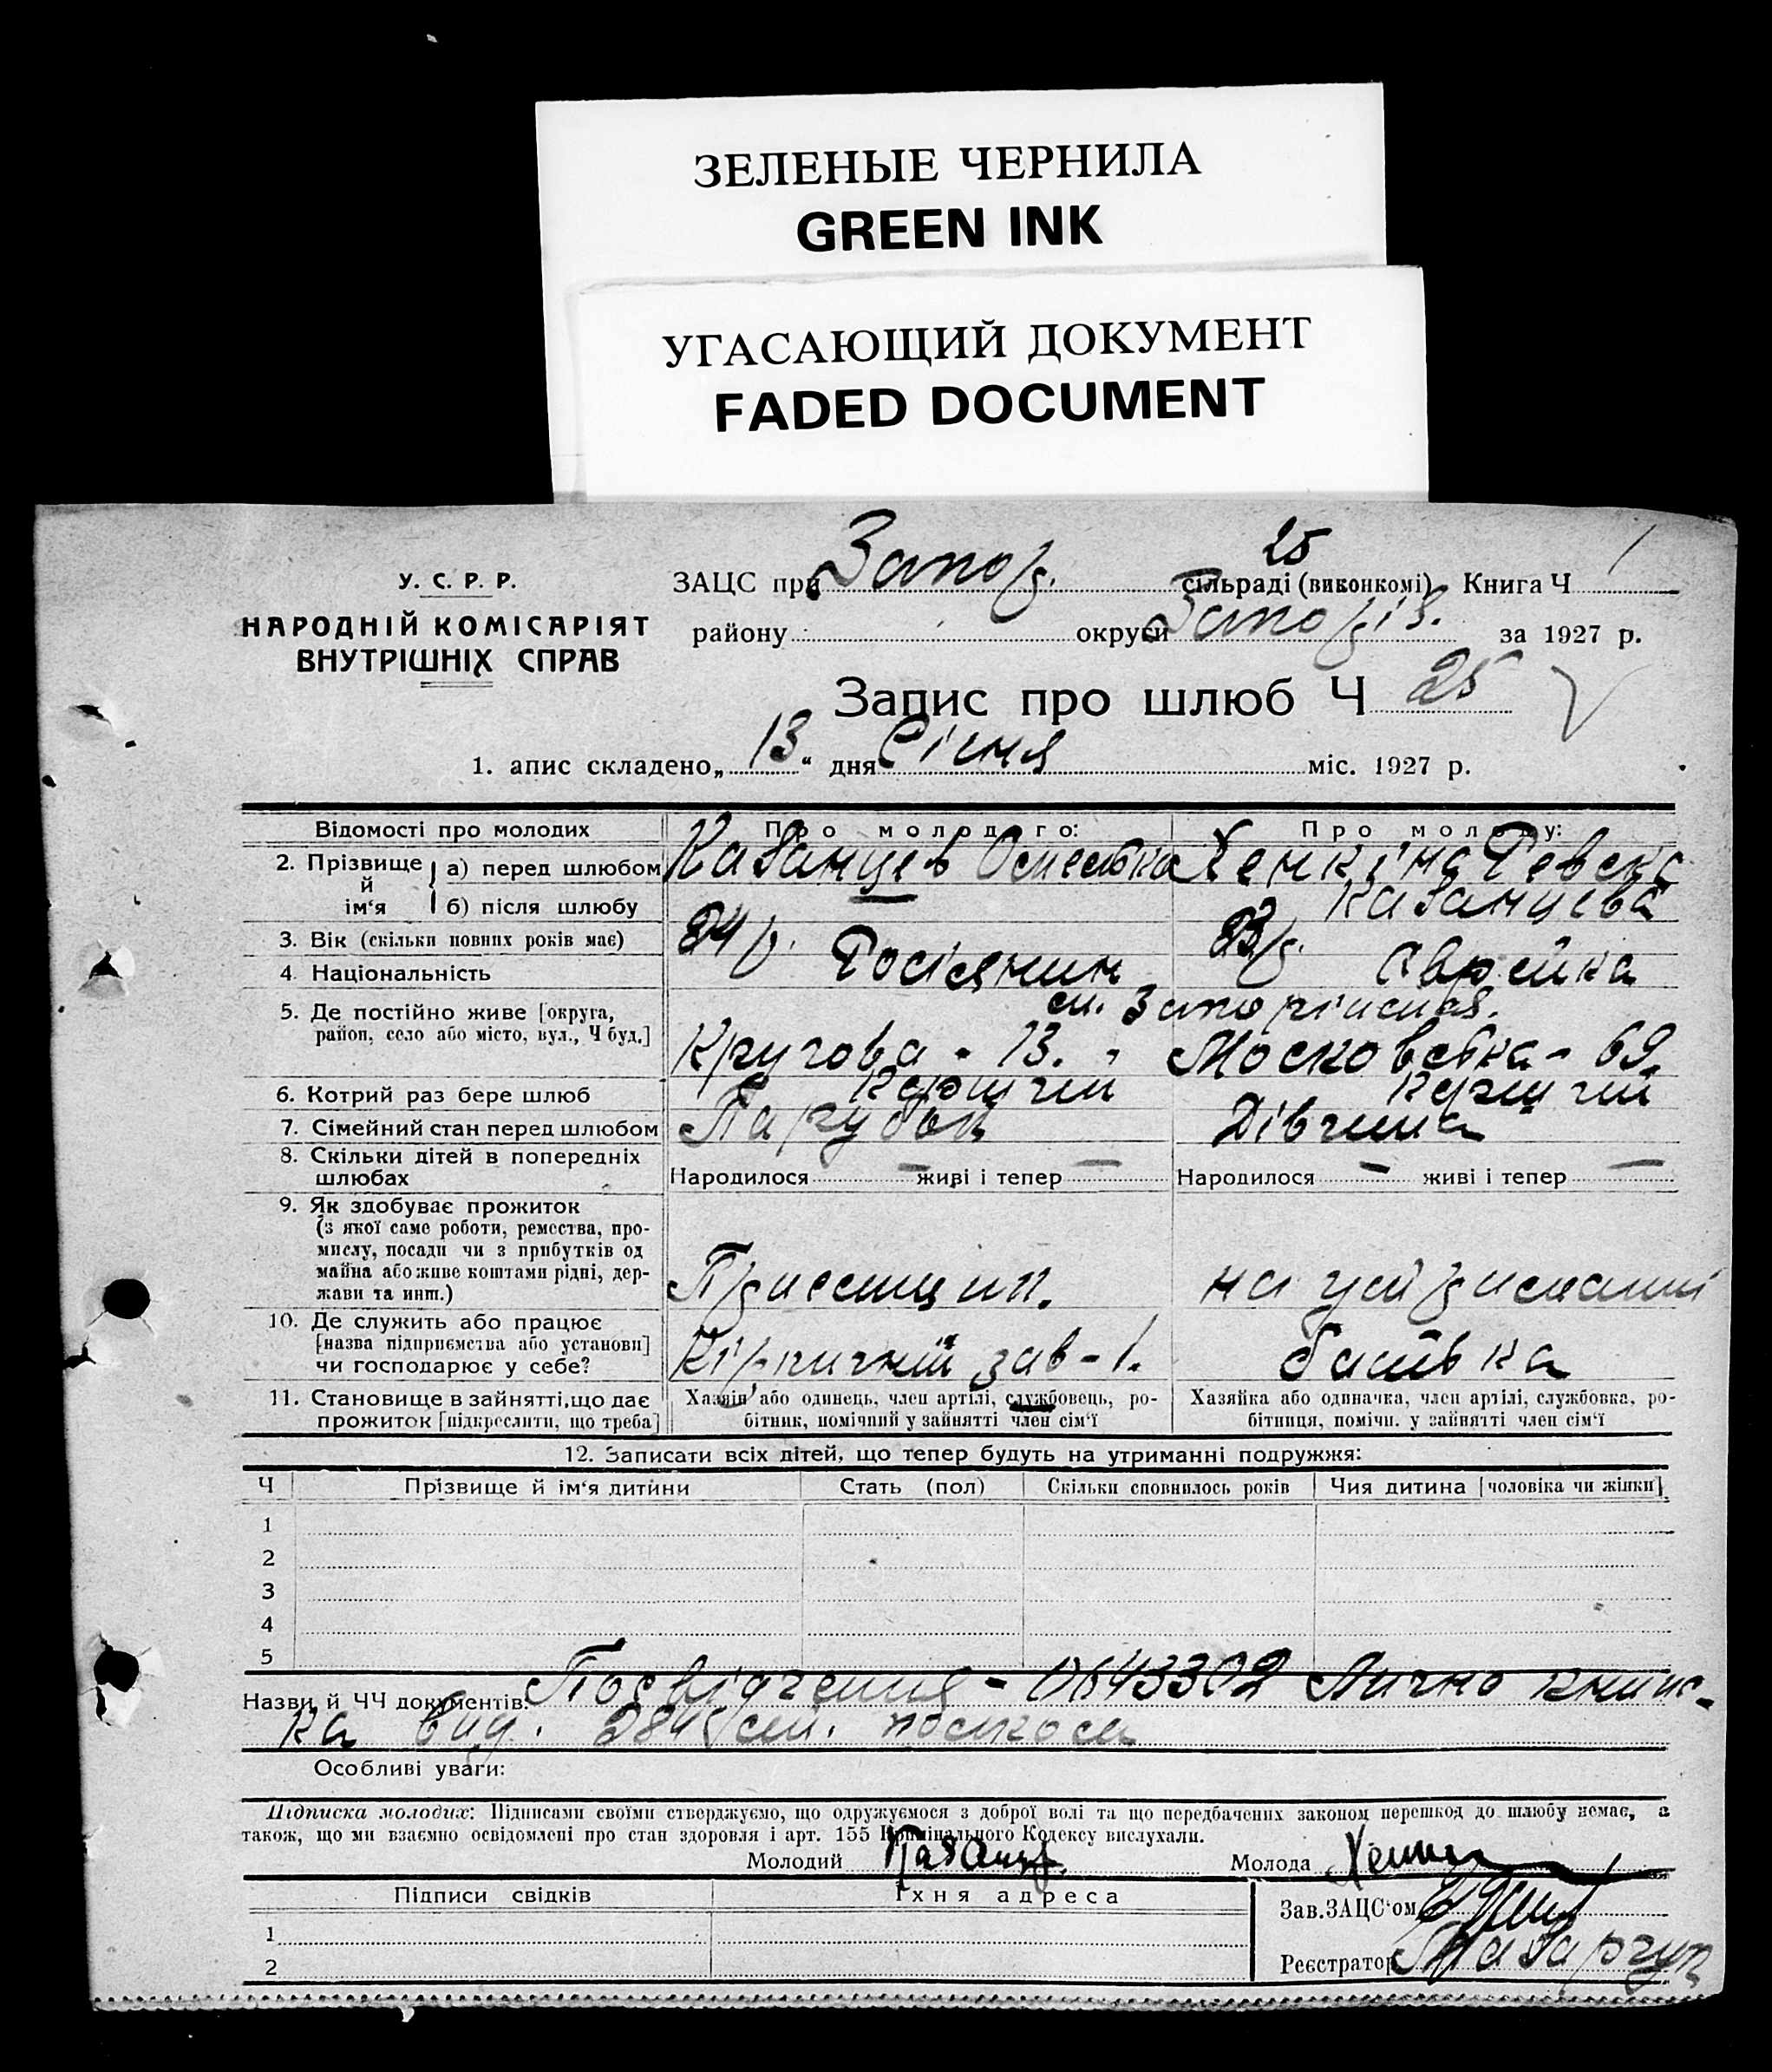 ЗЕЛЕНЫЕ ЧЕРНИЛА
GREEN INK
УГАСАЮЩИЙ ДОКУМЕНТ
FADED DOCUMENT
У. С. Р. Р.
НАРОДНІЙ КОМІСАРІЯТ
ВНУТРІШНІХ СПРАВ
25
ЗАЦС при Запор. сільраді (виконкомі) Книга Ч
району округи Запоріз. за 1927 р.
Запис про шлюб Ч 25
1. апис складено „13“ дня Січня міс. 1927 р.
Відомості про молодих Про молодого: Про молоду:
2. Прізвище й ім‘я
а) перед шлюбом Казанцев Хенкіна Ревека
б) після шлюбу Казанцева
3. Вік (скільки повних років має) 24 р. 23 р.
4. Національність Росіянин Єврейка
5. Де постійно живе [округа,
район, село або місто, вул., Ч буд.]
м.
Кругова - 13. Московська - 69.
6. Котрий раз бере шлюб Перший Перший
7. Сімейний стан перед шлюбом Парубок Дівчина
8. Скільки дітей в попередніх
шлюбах Народилося — живі і тепер — Народилося — живі і тепер —
9. Як здобуває прожиток
(з якої саме роботи, ремества, про-
мислу, посади чи з прибутків од
майна або живе коштами рідні, дер-
жави та инш.)
на
10. Де служить або працює
[назва підприємства або установи]
чи господарює у себе?
зав-1. батька
11. Становище в зайнятті, що дає
прожиток [підкреслити, що треба]
Хазяїн або одинець, член артілі, службовець, ро-
бітник, помічний у зайнятті член сім‘ї
Хазяйка або одиначка, член артілі, службовка, ро-
бітниця, помічн. у зайнятті член сім‘ї
12. Записати всіх дітей, що тепер будуть на утриманні подружжя:
Ч Прізвище й ім‘я дитини Стать (пол) Скільки сповнилось років Чия дитина [чоловіка чи жінки]
1
2
3
4
5
Назви й ЧЧ документів: Посвідчення - 0643302 Лично книж-
ка вид.
Особливі уваги:
Підписка молодих: Підписами своїми стверджуємо, що одружуємося з доброї волі та що передбачених законом перешкод до шлюбу немає, а
також, що ми взаємно освідомлені про стан здоровля і арт. 155 Кримінального Кодексу вислухали.
Молодий Молода
Підписи свідків Їхня адреса
Зав. ЗАЦС‘ом
1
Реєстратор
2